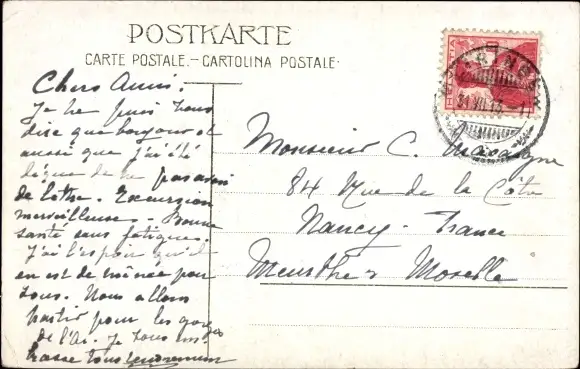 POSTKARTE
CARTE POSTALE.—CARTOLINA POSTALE.
HELVETIA
31.VII.13.-11
Chers Amis.
Je ne puis vous
dire que bonjour et
aussi que j'ai été
déçue de ne pas avoir
de lettre. Excursion
merveilleuse. Bonne
santé sans fatigue.
J'ai l'espoir qu'il
en est de même pour
vous. Nous allons
partir pour les gorges
de l'Aar. Je vous em-
brasse tous tendrement
Monsieur C.
84 Rue de la Côte
Nancy - France
Meurthe & Moselle